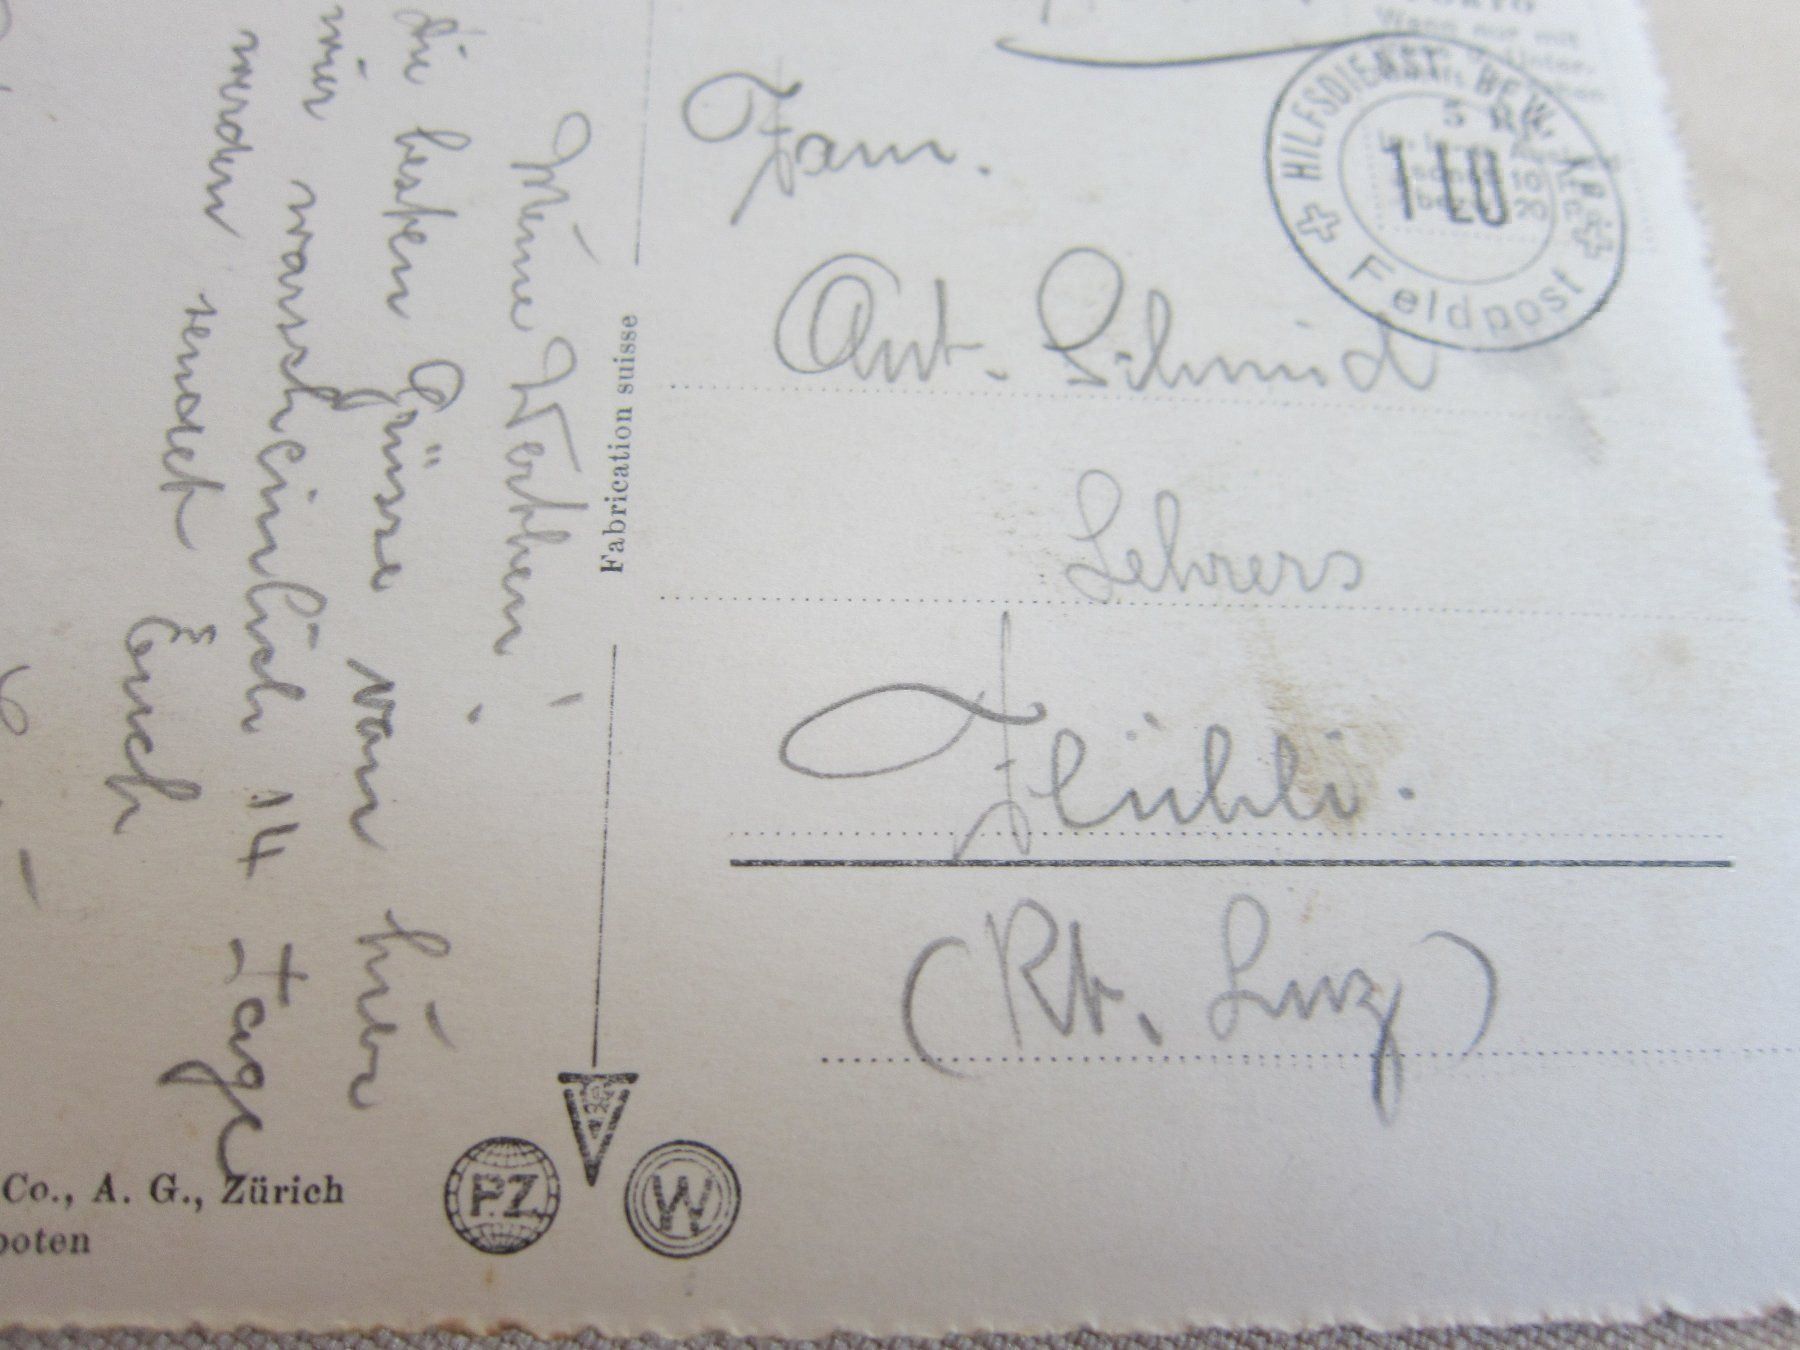 Meine Werthen!
die besten Grüsse von hier
wir warscheinlich 14 Tage
werden sendet Euch
Fabrication suisse
Co., A. G., Zürich
boten
PZ
W
Wenn nur mit
HILFSDIENST
1 LU
Feldpost
Fam.
Ant. Schmid
Lehrers
Flühli.
(Kt. Luz)